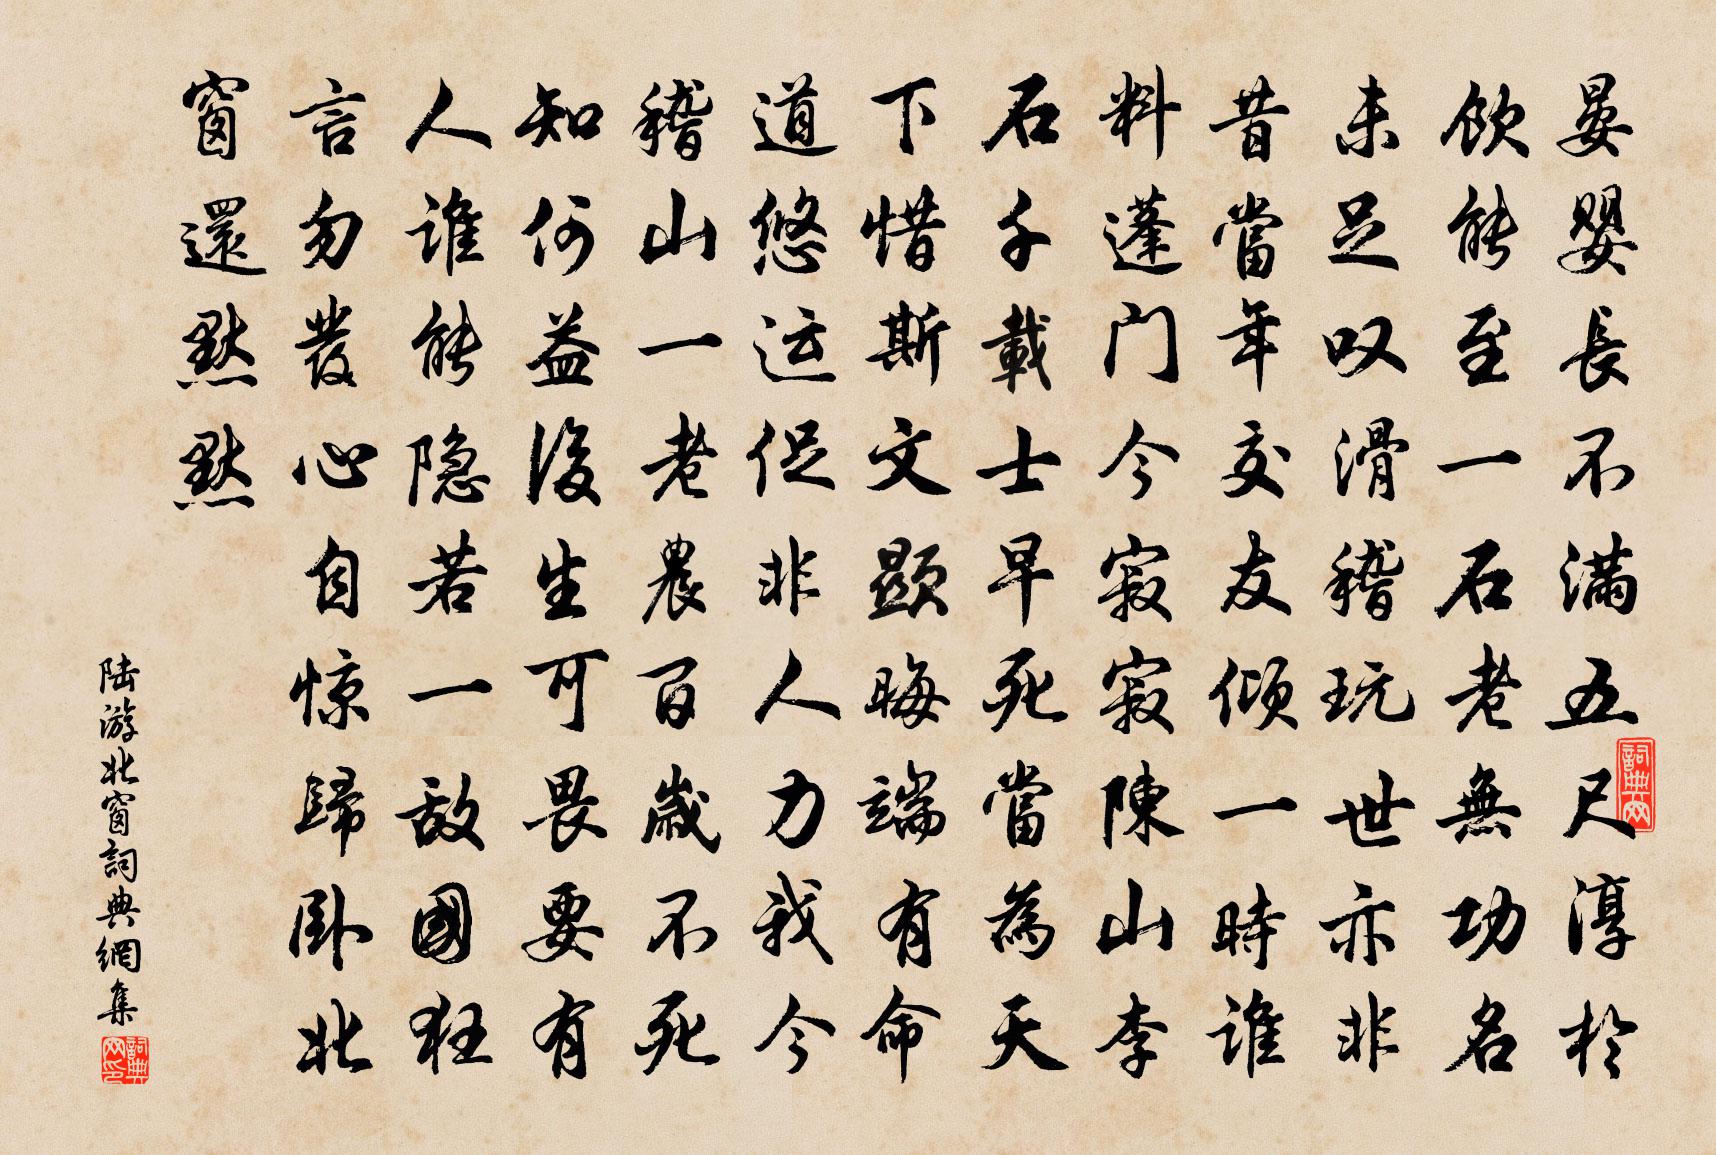 晏婴長不满五尺淳於
飲能至一石老無功名
未足叹滑稽玩世亦非
昔當年交友倾一時谁
料蓬门今寂寂陳山李
石千載士早死當為天
下惜斯文顯晦端有命
道悠运促非人力我今
稽山一老農百歲不死
知何益後生可畏要有
人谁能隐若一敌國狂
言勿發心自惊歸卧北
窗還默默
陆游北窗詞典網集
詞典网
詞典网印